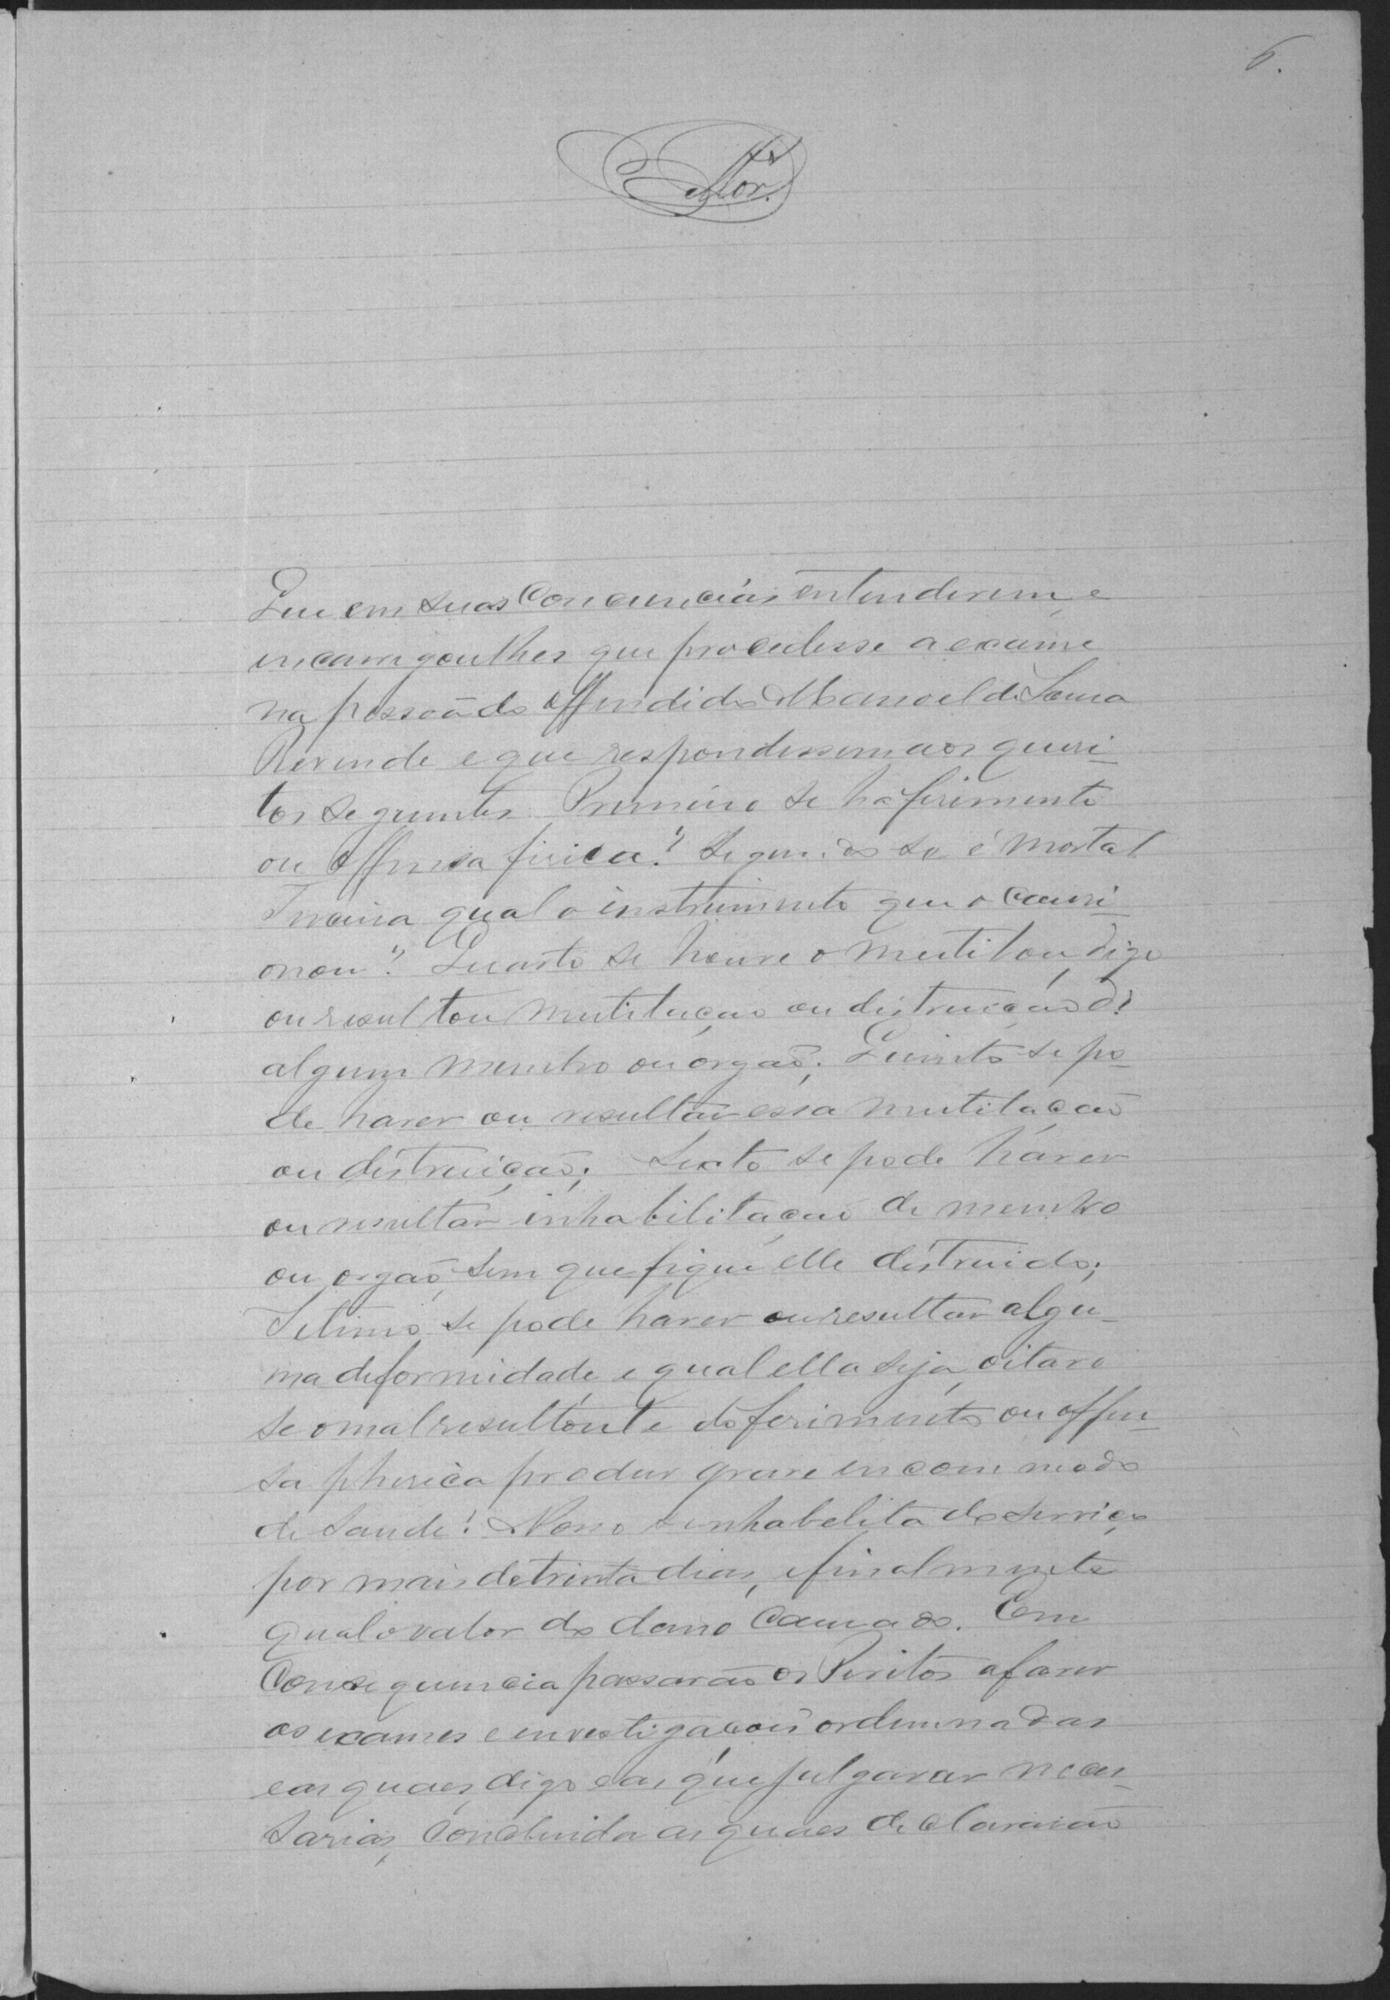 6.
Que em suas Conciencias entenderem, e
encarregoulhes que procedesse a exame
na pessoa do offendido Manoel de Sousa
Resende e que respondessem aos quesi-
tos seguintes Primeiro se ha ferimento
ou offensa fisica? Segundo se é mortal
Terceira qual o instrumento que o cauzi-
onou? Quarto se houve o mutilou, digo
ou resultou mutilação ou distruição de
algum membro ou orgaõ; Quinto se po-
de haver ou resultar essa mutilação
ou distruição; Sexto se pode haver
ou resultar inhabilitação de membro
ou orgaõ, sem que fique elle distruido;
Setimo se pode haver ou resultar algu-
ma deformidade e qual ella seja, oitavo
se o mal resultante do ferimento ou offen-
sa phisica produz grave encommodo
de saude? Nono se inhabelita do serviço
por mais de trinta dias, e finalmente
qual o valor do dano Causado. Em
Consequencia passarão os Peritos a fazer
os exames e investigações ordennadas
e as quaes, digo e as que julgarar neces-
sarias, Concluida as quaes declararão